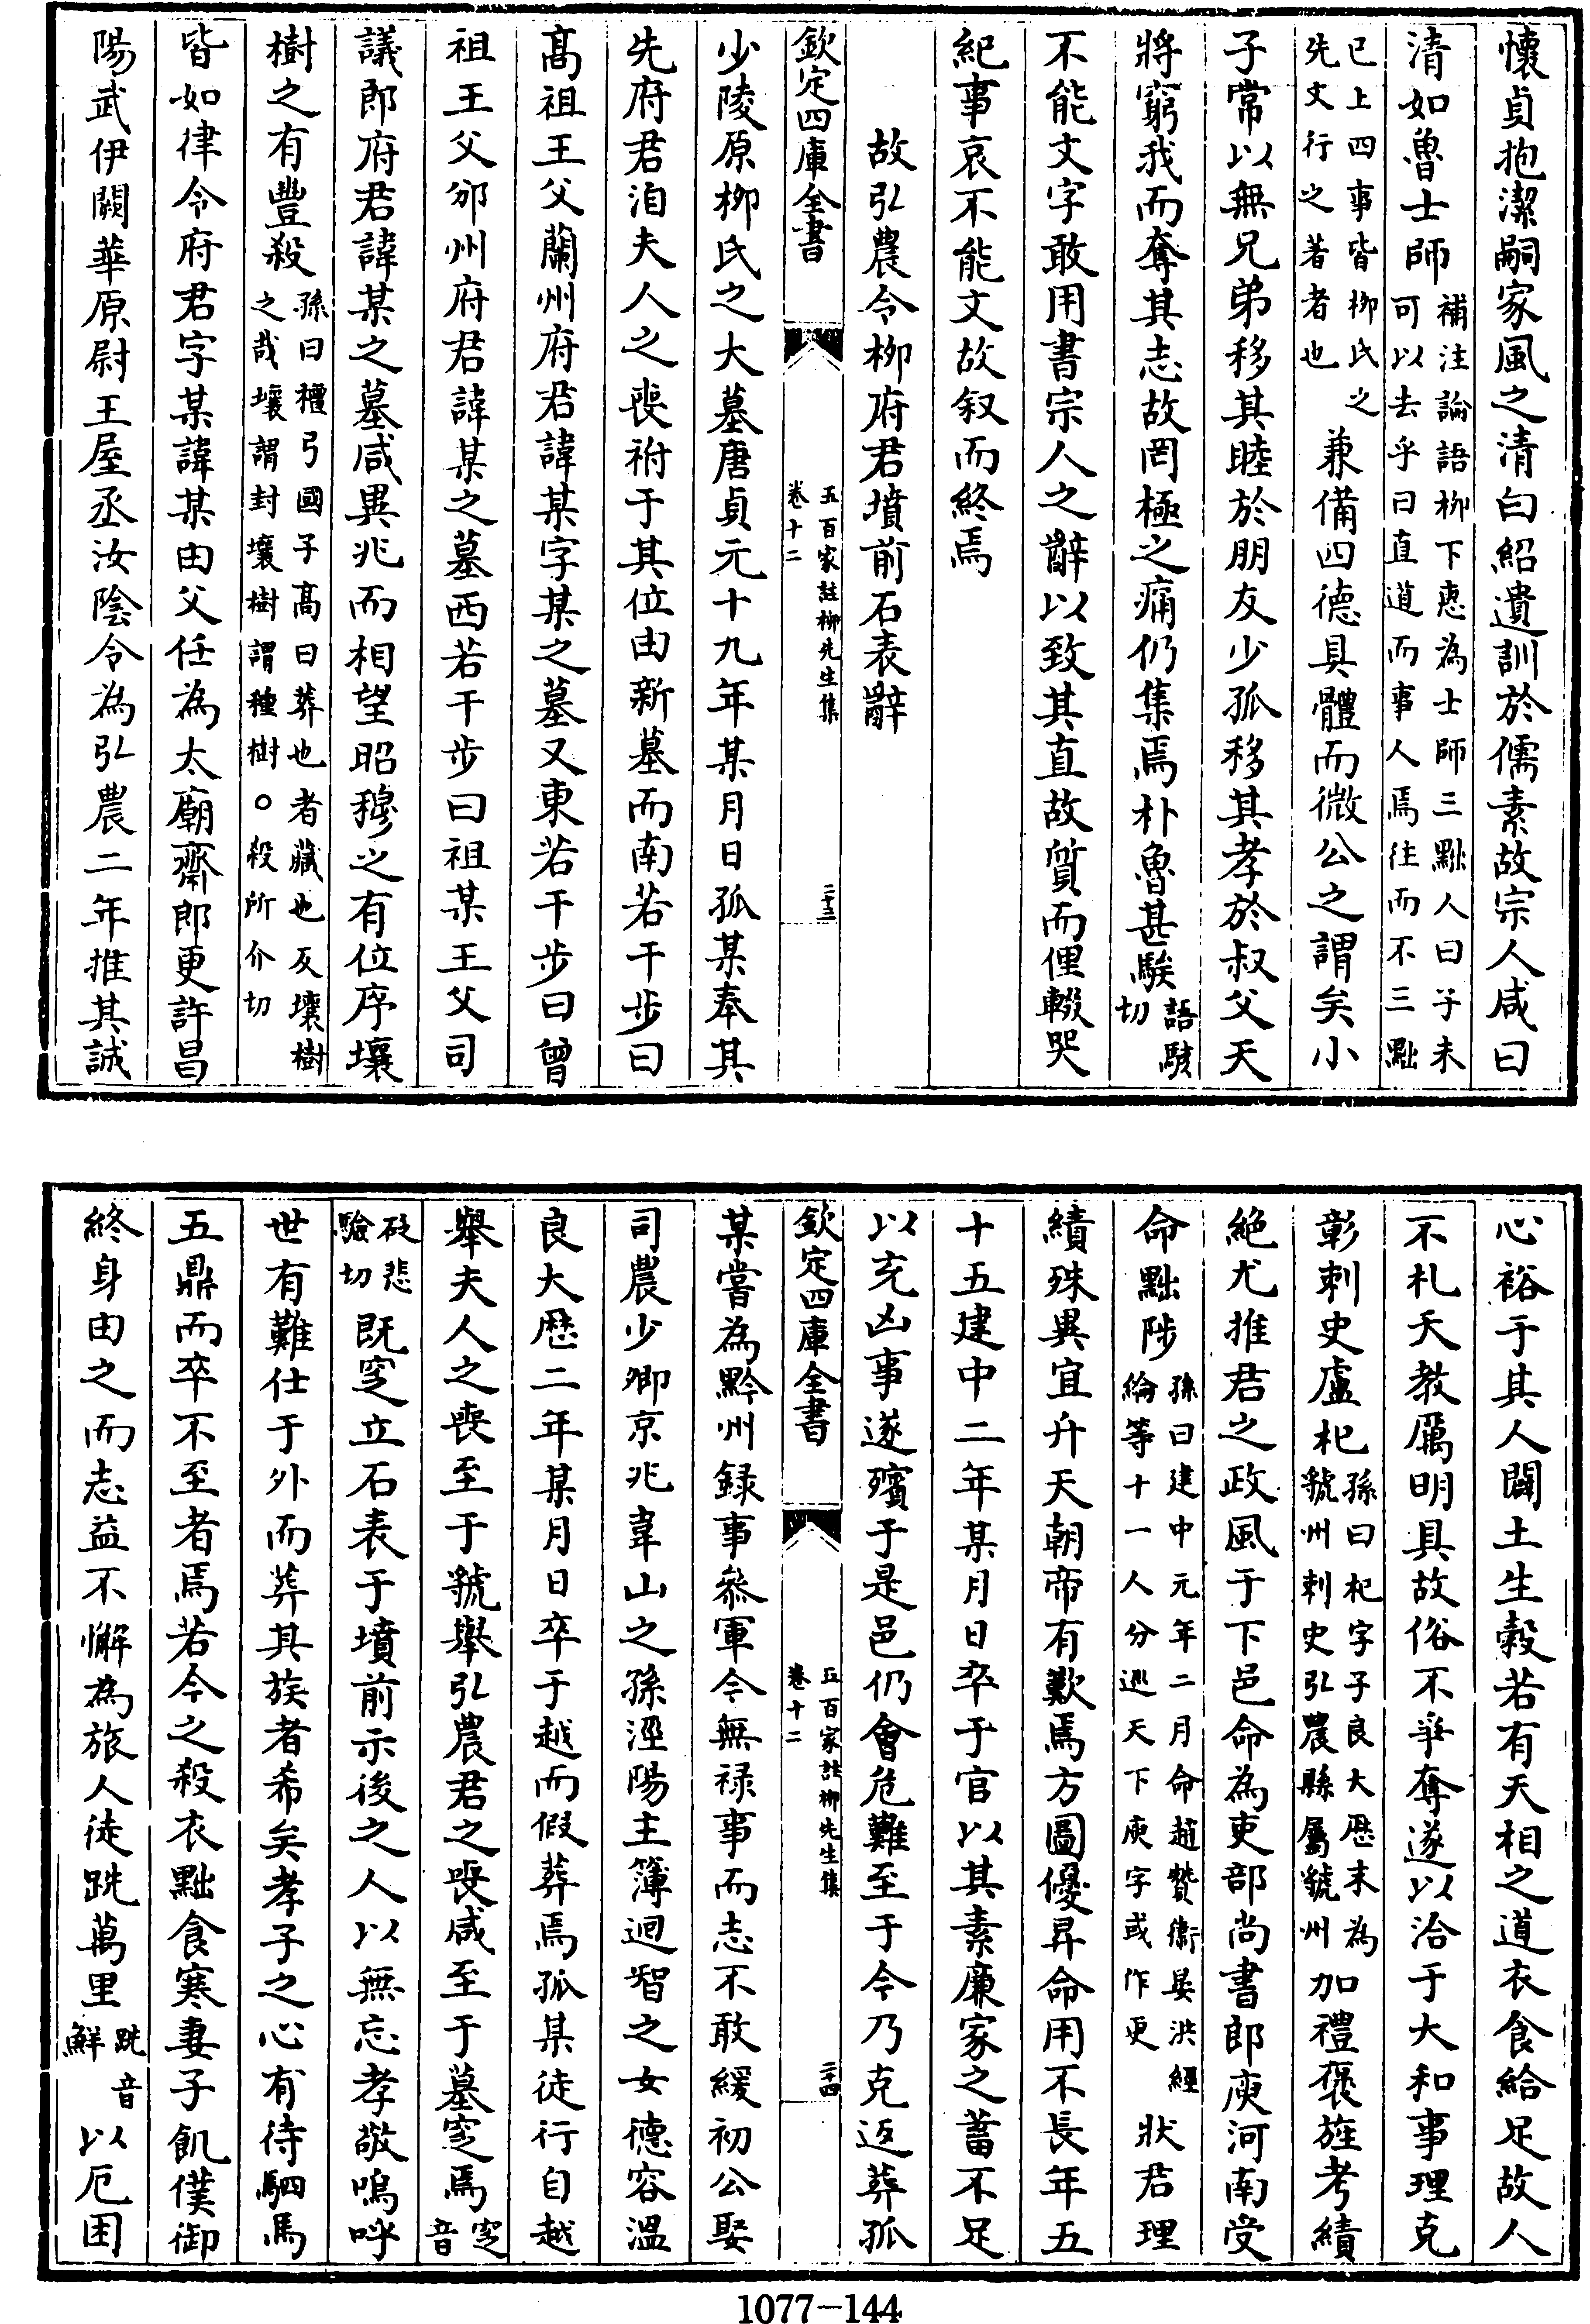 懷貞抱潔嗣家風之清白紹遺訓於儒素故宗人咸曰
清如魯士師補注論語柳下惠為士師三黜人曰子未可以去乎曰直道而事人焉往而不三黜
已上四事皆柳氏之先文行之著者也兼備四德具體而微公之謂矣小
子常以無兄弟移其睦於朋友少孤移其孝於叔父天
將窮我而奪其志故罔極之痛仍集焉朴魯甚騃語駭切
不能文字敢用書宗人之辭以致其直故質而俚輟哭
紀事哀不能文故叙而終焉
故弘農令柳府君墳前石表辭
欽定四庫全書
五百家註柳先生集
卷十二
二十三
少陵原柳氏之大墓唐貞元十九年某月日孤某奉其
先府君洎夫人之喪祔于其位由新墓而南若干步曰
髙祖王父蘭州府君諱某字某之墓又東若干步曰曾
祖王父邠州府君諱某之墓西若干步曰祖某王父司
議郎府君諱某之墓咸異兆而相望昭穆之有位序壤
樹之有豐殺孫曰檀弓國子髙曰葬也者藏也反壤樹之哉壤謂封壤樹謂種樹○殺所介切
皆如律令府君字某諱某由父任為太廟齋郎更許昌
陽武伊闕華原尉王屋丞汝陰令為弘農二年推其誠
心裕于其人闢土生穀若有天相之道衣食給足故人
不札夭教厲明具故俗不爭奪遂以洽于大和事理克
彰刺史盧杞孫曰杞字子良大厯末為虢州刺史弘農縣屬虢州加禮褒旌考績
絶尤推君之政風于下邑命為吏部尚書郎庾河南受
命黜陟孫曰建中元年二月命趙贊衞晏洪經綸等十一人分巡天下庾字或作更狀君理
績殊異宜升天朝帝有歎焉方圖優昇命用不長年五
十五建中二年某月日卒于官以其素廉家之蓄不足
以充凶事遂殯于是邑仍會危難至于今乃克返葬孤
欽定四庫全書
五百家註柳先生集
卷十二
二十四
某嘗為黔州録事叅軍今無禄事而志不敢緩初公娶
司農少卿京兆韋山之孫涇陽主簿迥智之女德容温
良大厯二年某月日卒于越而假葬焉孤某徒行自越
舉夫人之喪至于虢舉弘農君之喪咸至于墓窆焉窆音
砭悲驗切既窆立石表于墳前示後之人以無忘孝敬嗚呼
世有難仕于外而葬其族者希矣孝子之心有待駟馬
五鼎而卒不至者焉若今之殺衣黜食寒妻子飢僕御
終身由之而志益不懈為旅人徒跣萬里跣音鮮以厄困
1077-144